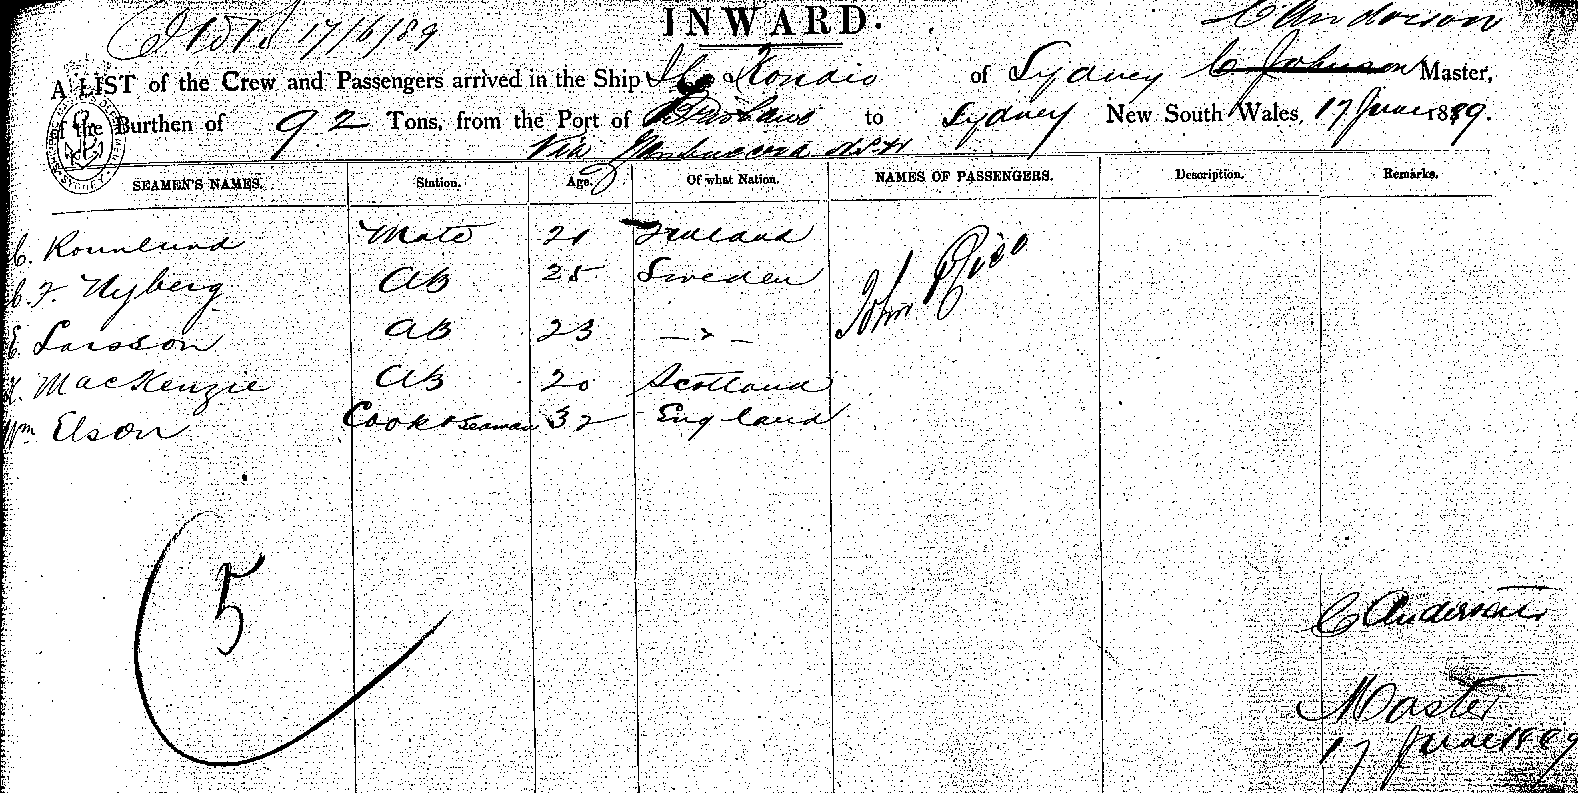 17/6/89
INWARD.
C Anderson
A LIST of the Crew and Passengers arrived in the Ship of Sydney C Johnson Master,
of the Burthen of 92 Tons, from the Port of Brisbane to Sydney New South Wales, 17 June 1889.
Via
SEAMEN'S NAMES. Station. Age. Of what Nation. NAMES OF PASSENGERS. Description. Remarks.
C. Mate 21
C. F. Nyberg AB 25 Sweden John Rico
E. Larsson AB 23 — " —
MacKenzie AB 20 Scotland
Wm Elson Cook & Seaman 32 England
5
C Anderson
Master
17 June 1889